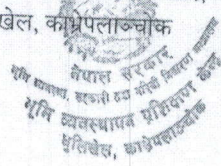 खेल, काभ्रेपलाञ्चोक
नेपाल सरकार
भूमि व्यवस्था, सहकारी तथा गरिबी निवारण मन्त्रालय
भूमि व्यवस्थापन प्रशिक्षण केन्द्र
धुलिखेल, काभ्रेपलाञ्चोक